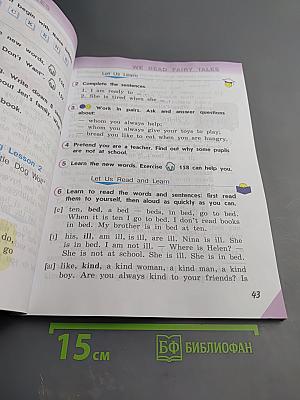 begin with
new words.
Don't wan
Lesson 2
tle Dog Wor-
do,
go
book.
WE READ FAIRY TALES
Let Us Learn
2 Complete the sentences.
1. I am ready to ...
2. She is tired when she ...
3 Work in pairs. Ask and answer questions
about:
— whom you always help;
— whom you always give your toys to play;
— bread you like to eat when you are hungry.
4 Pretend you are a teacher. Find out why some pupils
are not at school.
5 Learn the new words. Exercise 158 can help you.
Let Us Read and Learn
6 Learn to read the words and sentences: first read
them to yourself, then aloud as quickly as you can.
[e] ten, bed, a bed — beds, in bed, go to bed.
When it is ten I go to bed. I don't read books
in bed. My brother is in bed at ten.
[ɪ] his, ill, am ill, is ill, are ill. Nina is ill. She
is in bed. I am not ill. — Where is Helen? —
She is not at school. She is ill. She is in bed.
[aɪ] like, kind, a kind woman, a kind man, a kind
boy. Are you always kind to your friends? Is
43
15 см
БФ БИБЛИОФАН